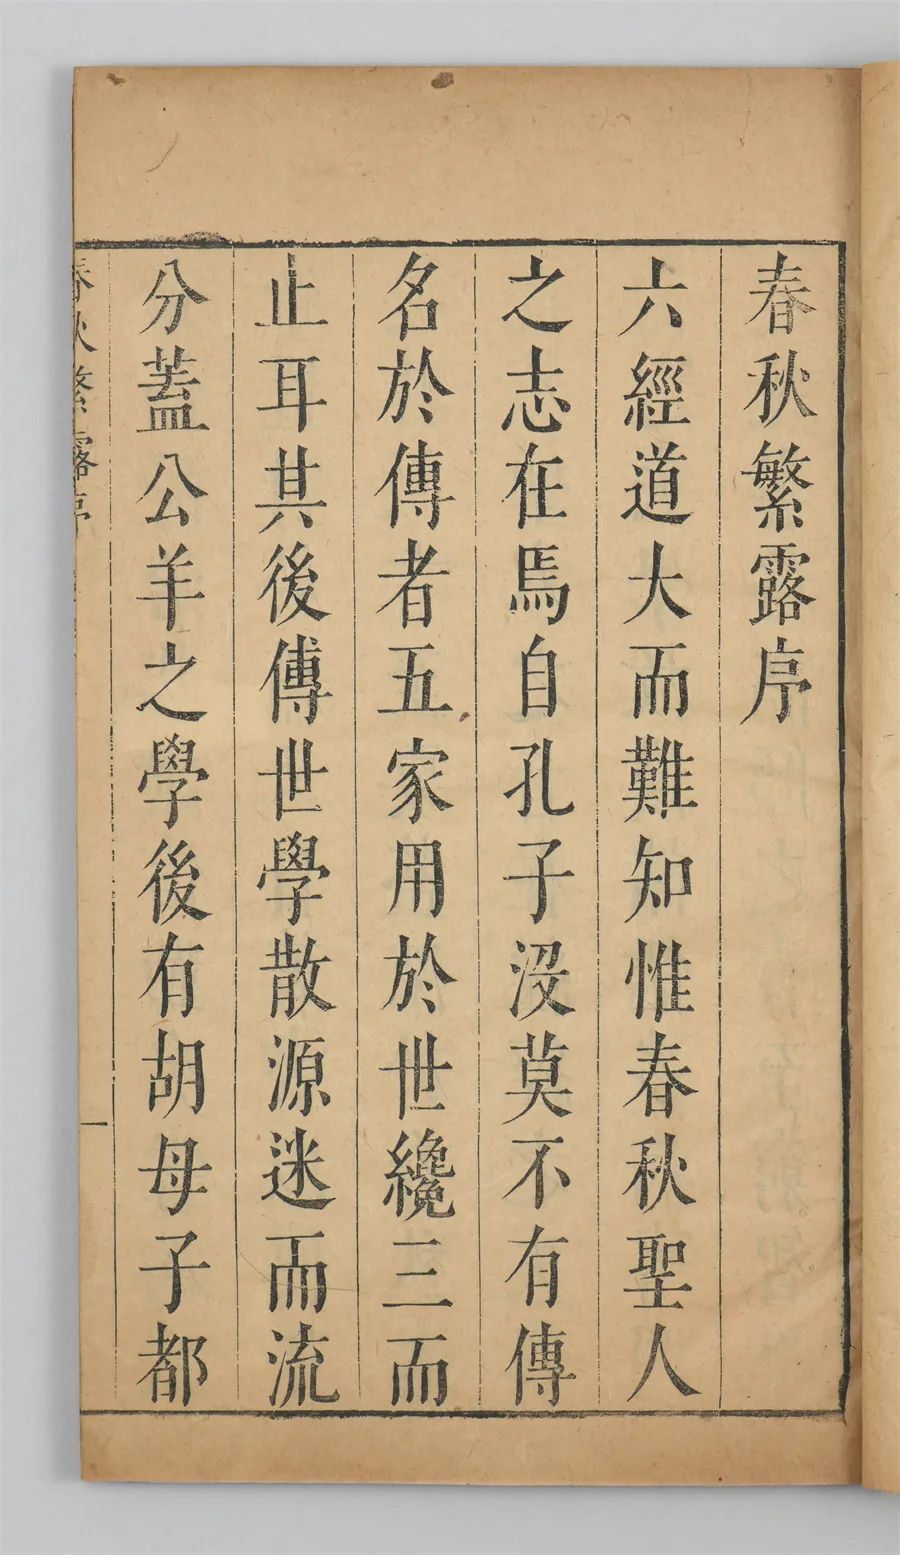 春秋繁露序
六經道大而難知惟春秋聖人
之志在焉自孔子沒莫不有傳
名於傳者五家用於世纔三而
止耳其後傳世學散源迷而流
分蓋公羊之學後有胡母子都
春秋繁露序
一